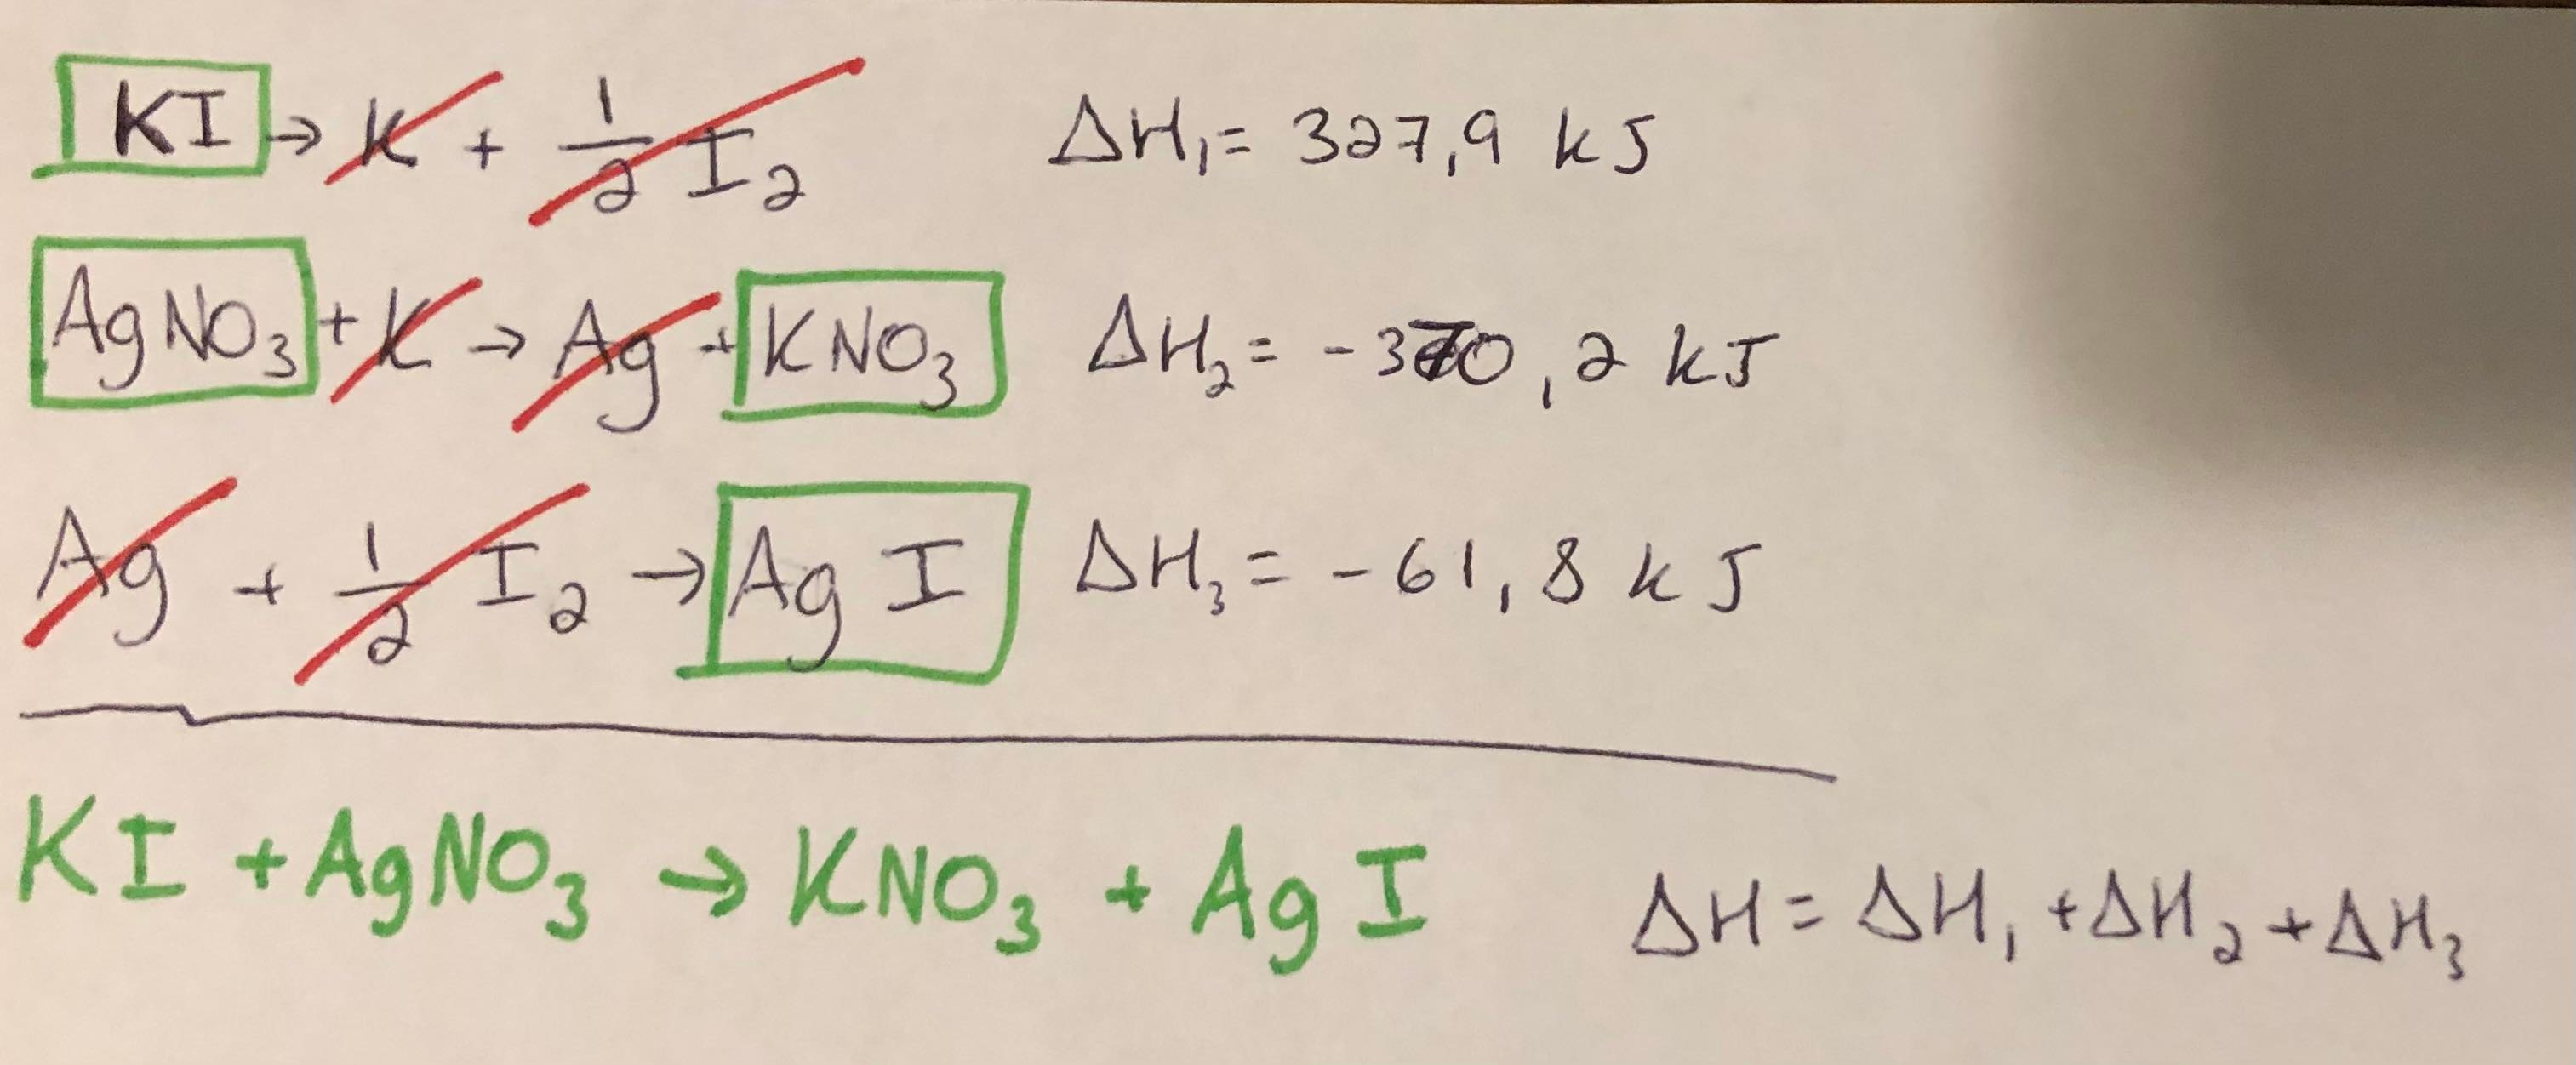 KI → K + 1/2 I₂ ΔH₁ = 327,9 kJ
AgNO₃ + K → Ag + KNO₃ ΔH₂ = -370,2 kJ
Ag + 1/2 I₂ → AgI ΔH₃ = -61,8 kJ
KI + AgNO₃ → KNO₃ + AgI ΔH = ΔH₁ + ΔH₂ + ΔH₃